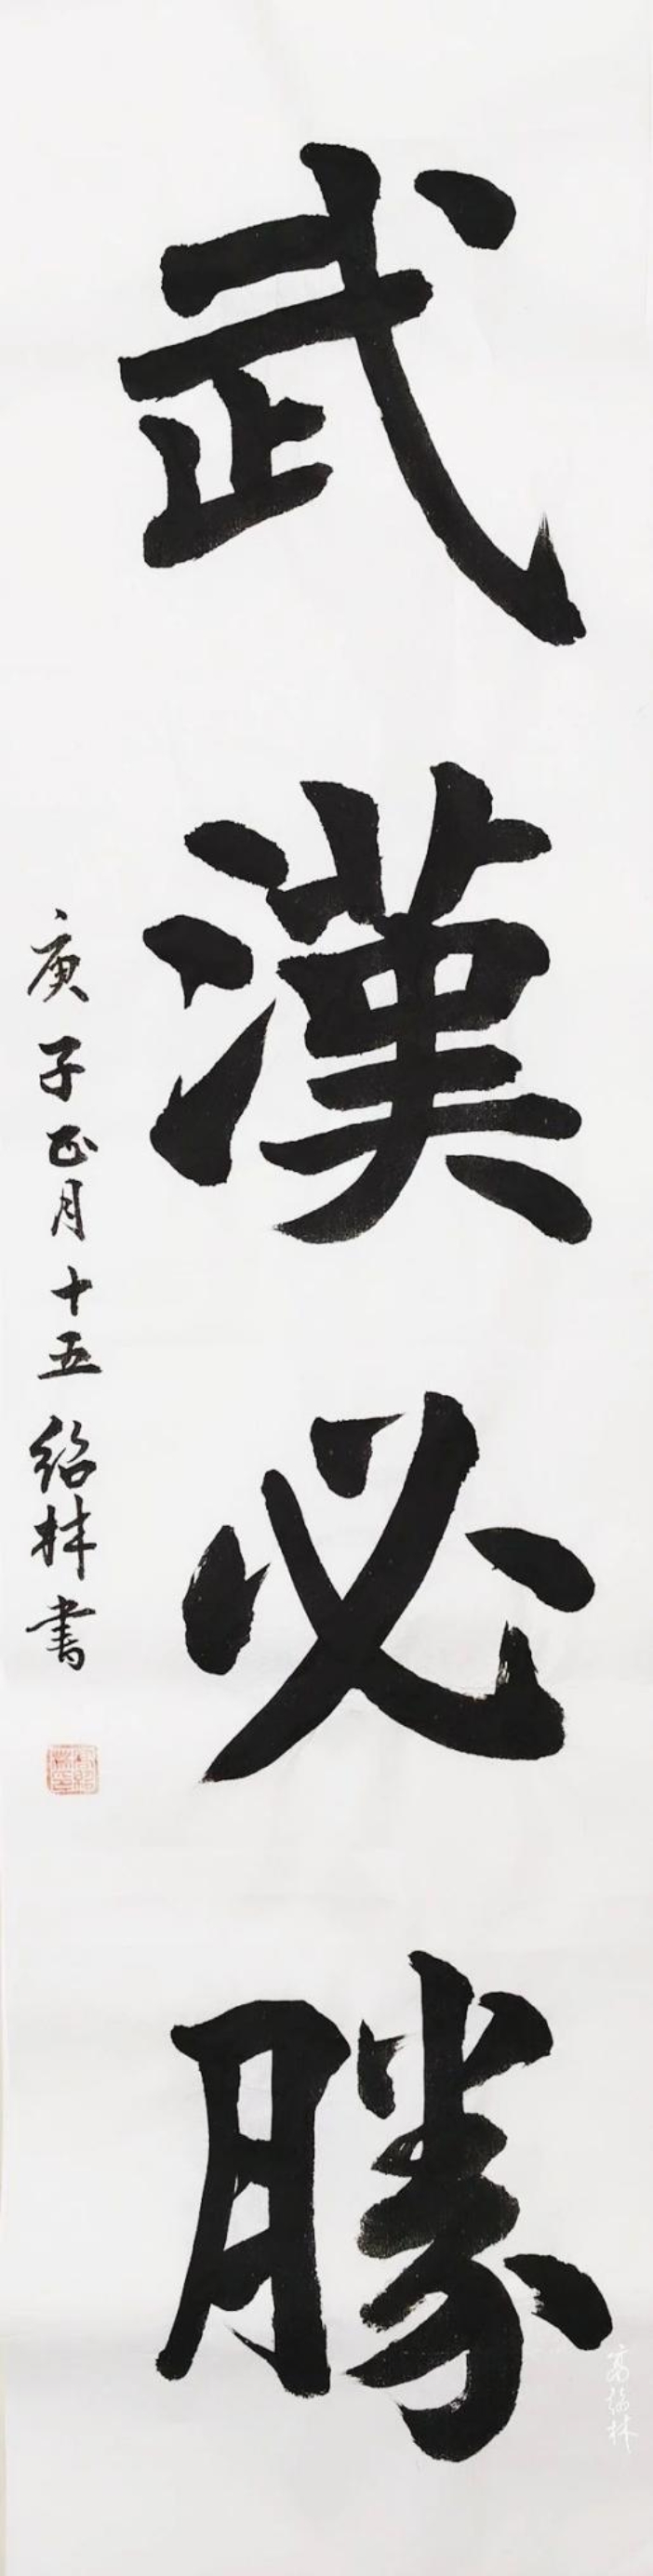 武漢必勝
庚子正月十五绍林書
高绍林